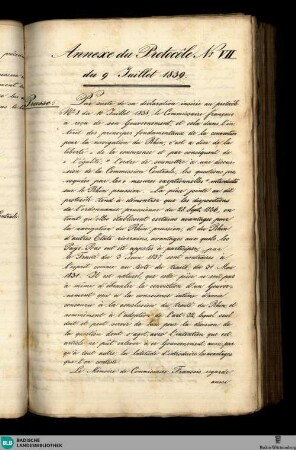 Annexe du Protocole No VII
du 9 Juillet 1839.
Prusse:
Par suite de sa déclaration insérée au protocole
No 8 du 10 Juillet 1838, le Commissaire français
a reçu de son Gouvernement, et cela dans l'in-
térêt des principes fondamentaux de la convention
pour la navigation du Rhin, c'est à dire de la li-
berté de la commerce et par conséquent de
l'égalité, l'ordre de soumettre à une décision
de la Commission Centrale, les questions, pro-
voquées par les mesures exceptionnelles existantes
sur le Rhin prussien. La pièce jointe au dit
protocole tend à démontrer que les dispositions
de l'ordonnance prussienne du Sept. 1836, en
tant qu'elles établissent certains avantages pour
la navigation du Rhin prussien, et du Rhin
d'autres Etats riverains, avantages aux quels les
Pays Bas ont été appelés à participer, par
le Traité du 3 Juin 1837, sont contraires à
l'esprit comme au texte du traité du 31 Mars
1831. Il est naturel que cette pièce ne soit pas
à même d'ébranler la conviction d'un Gouver-
nement que a la conscience intime d'avoir
concouru à la conclusion du traité du Rhin, et
nommément à l'adoption de l'art: 32, lequel seul
doit et peut servir de pour la décision de
la question dont s'agit, avec l'intention que cet
article ne peut enlever à ce Gouvernement, aussi peu
qu'à tout autre la latitude d'introduire les avantages
que l'on conteste.
Le Mémoire du Commissaire Français regarde
aussi
BLB BADISCHE
LANDESBIBLIOTHEK
Baden-Württemberg